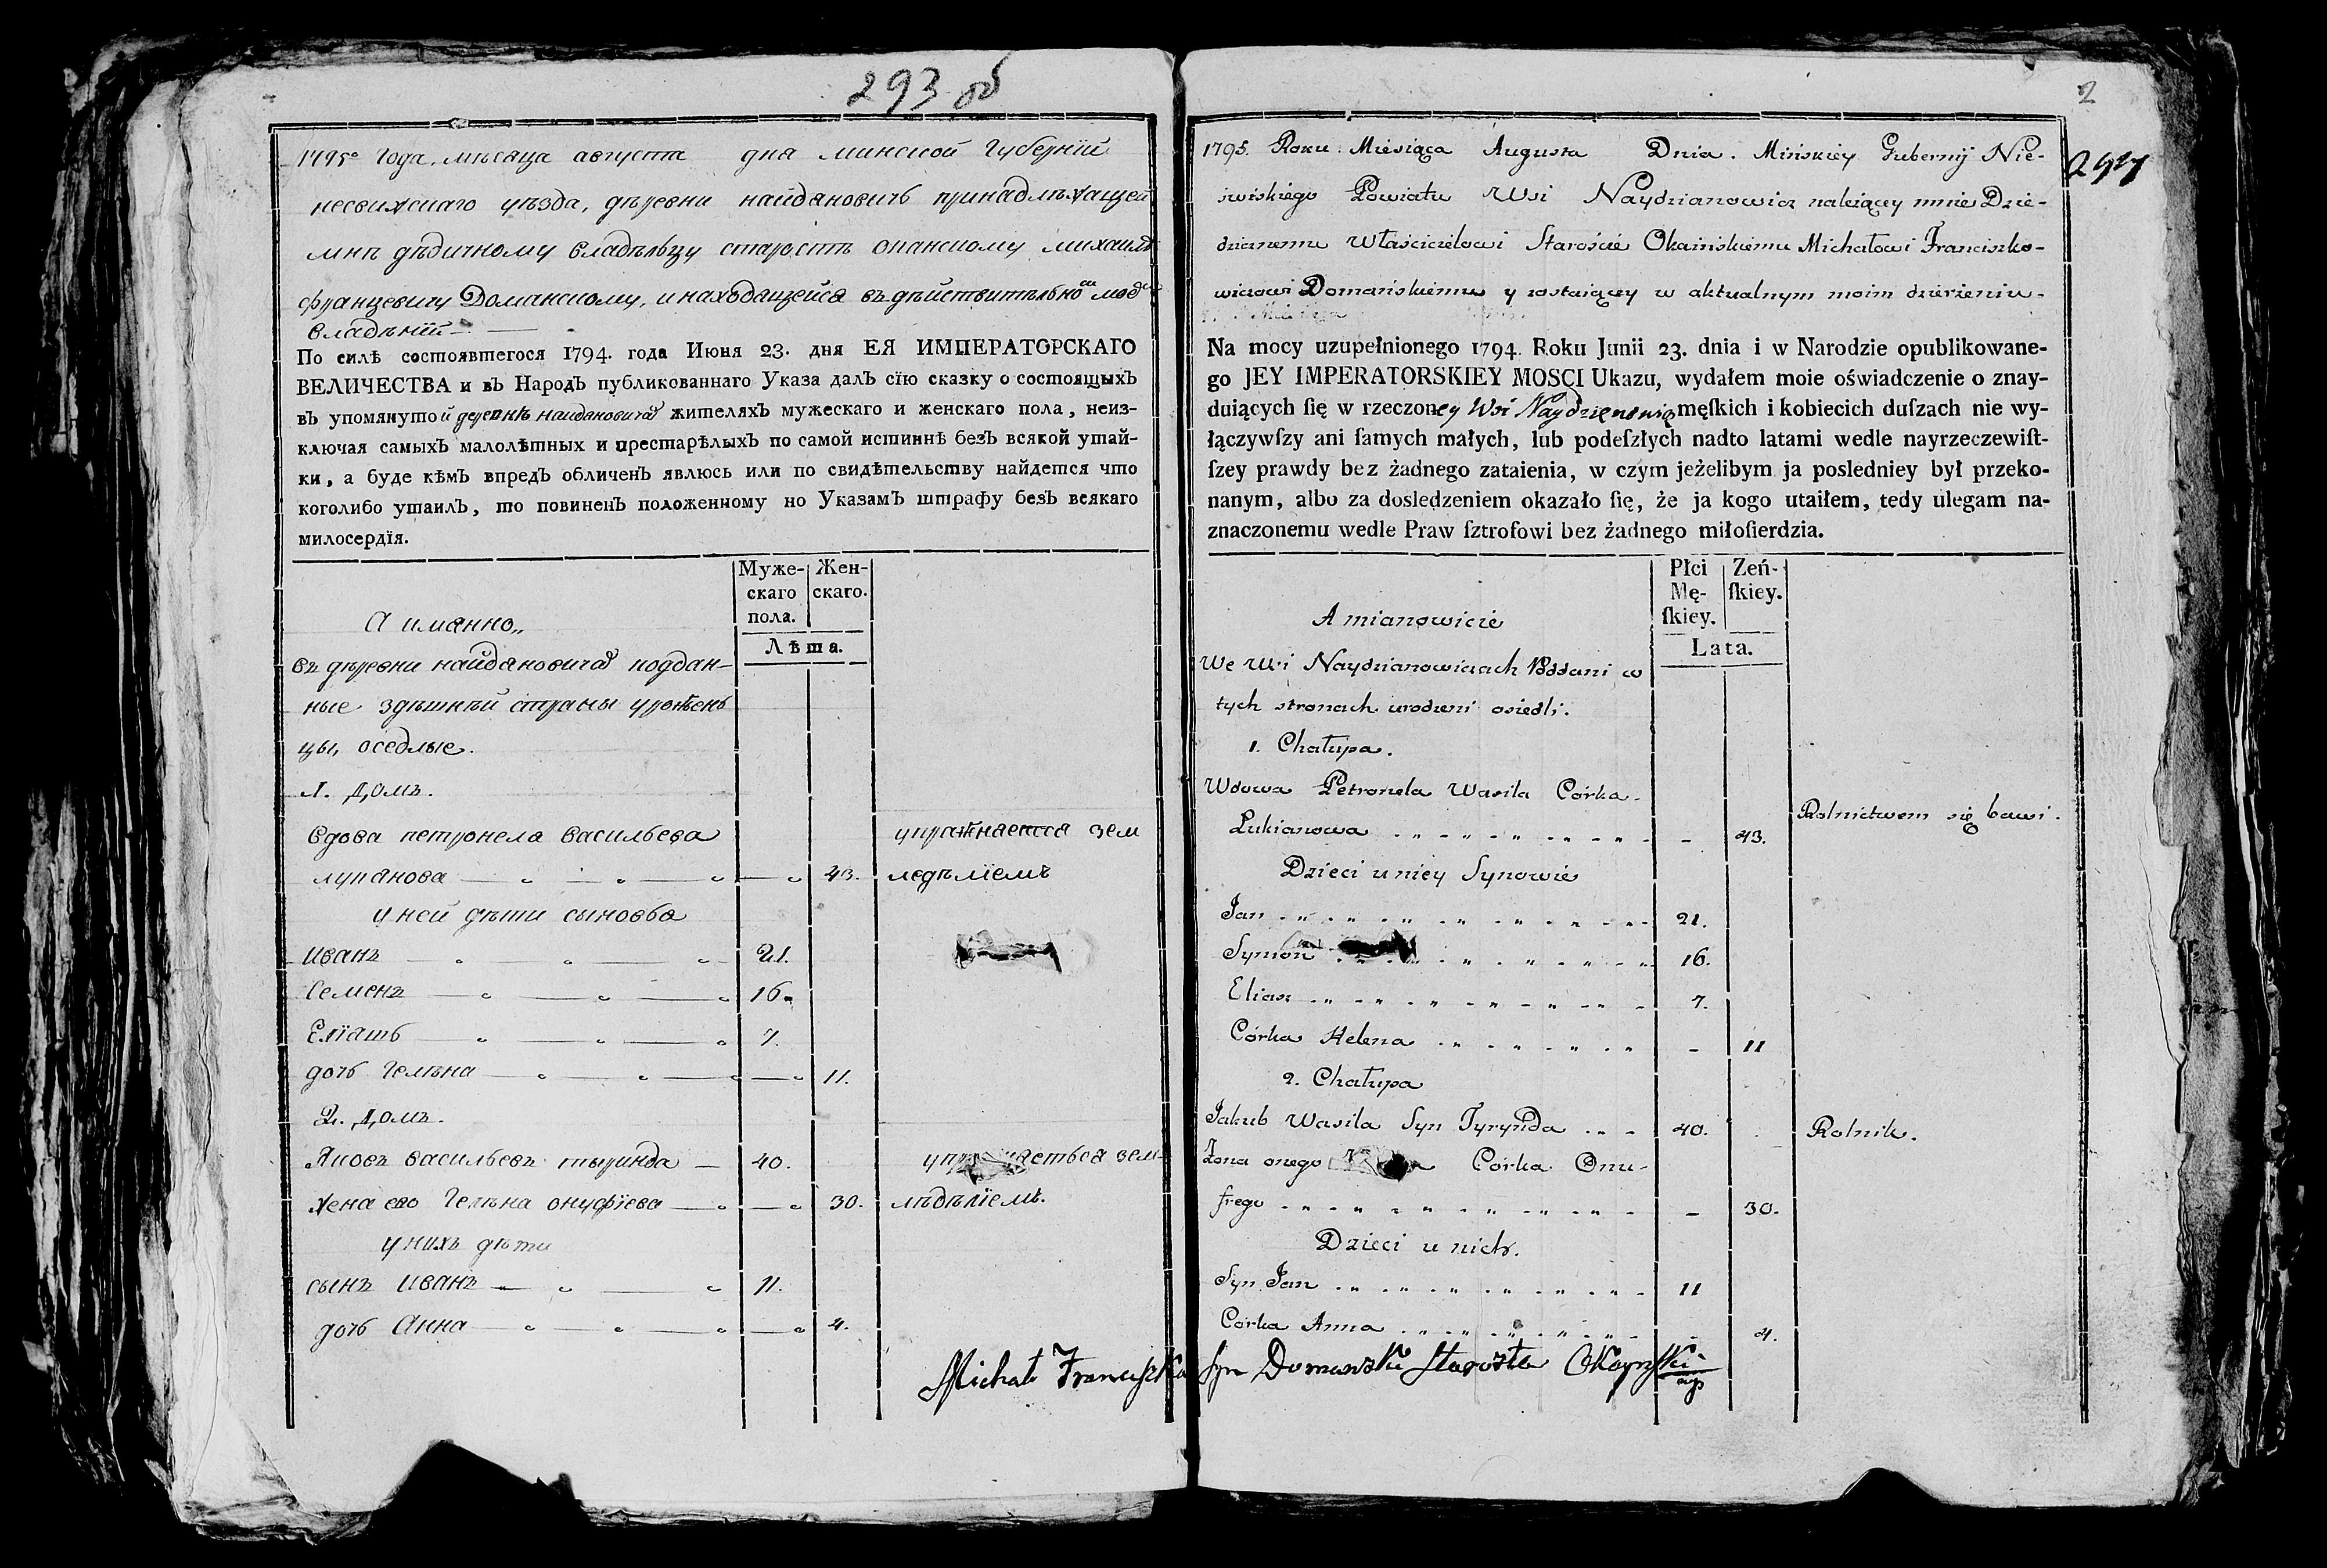 293 об
1795го Года, мѣсяца августа дня минской Губерніи
несвижскаго уѣзда, дѣревни найдановичь принадлѣжащей
мнѣ дѣдичному владѣльцу старостѣ оканскому михаилѣ
францевичу Доманскому, и находящейся въ дѣйствительномъ моемъ
владѣніи
По силѣ состоявшегося 1794. года Июня 23. дня ЕЯ ИМПЕРАТОРСКАГО
ВЕЛИЧЕСТВА и въ Народъ публикованнаго Указа далъ сїю сказку о состоящыхъ
въ упомянутой деревнѣ найдановичах жителяхъ мужескаго и женскаго пола, неиз-
ключая самыхъ малолѣтных и престарѣлыхъ по самой истиннѣ безъ всякой утай-
ки, а буде кѣмъ впредъ обличенъ явлюсь или по свидѣтельству найдется что
коголибо утаилъ, то повиненъ положенному по Указамъ штрафу безъ всякаго
милосердїя.
Муже-скаго пола. Жен-скаго.
Лѣта.
А иманно
въ дѣревни найдановичах поддан-
ные здѣшнѣй страны урожень
цы, оседлые.
1. Домъ.
вдова петронела васильева упражняется зем
лукянова 43. ледѣлїемъ
у ней дѣти сыновья
иванъ 21.
Семенъ 16.
Елїашъ 7.
дочь Гелѣна 11.
2. Домъ.
Яковъ васильевъ тыринда 40. зем-
жена ево Гелѣна онуфрїева 30. лѣдѣлїемъ.
у нихъ дѣти
сынъ иванъ 11.
дочь Анна 4.
2
294
1795. Roku Miesiąca Augusta Dnia. Mińskiey Gubernij Nie-
swiskiego Powiatu Wsi Naydzianowicz należącey mnie Dzie-
dzicznemu Właścicielowi Staroście Okaińskiemu Michałowi Franciszko-
wiczowi Domańskiemu y zostaiącey w aktualnym moim dzierżeniu.
Na mocy uzupełnionego 1794. Roku Junii 23. dnia i w Narodzie opublikowane-
go JEY IMPERATORSKIEY MOSCI Ukazu, wydałem moie oświadczenie o znay-
duiących ſię w rzeczoney Wsi Naydzienowicz męſkich i kobiecich duſzach nie wy-
łączywſzy ani ſamych małych, lub podeſzłych nadto latami wedle nayrzeczewiſt-
ſzey prawdy bez żadnego zataienia, w czym jeżelibym ja posledniey był przeko-
nanym, albo za dosledzeniem okazało ſię, że ja kogo utaiłem, tedy ulegam na-
znaczonemu wedle Praw ſztrofowi bez żadnego miłoſierdzia.
Płci Mę-ſkiey. Zeń-ſkiey.
Lata.
A mianowicie
We Wsi Naydzianowiczach Poddani w
tych stronach urodzeni osiedli.
1. Chałupa.
Wdowa Petronela Wasila Córka
Łukianowa 43. Rolnictwem się bawi.
Dzieci u niey Synowie
Jan 21.
Symon 16.
Eliasz 7.
Córka Helena 11
2. Chałupa
Jakub Wasila Syn Tyrynda 40. Rolnik.
Żona onego Córka Onu-
frego 30.
Dzieci u nich.
Syn Jan 11
Córka Anna 4.
Michał Franciszka Syn Domanski Starosta Okaynski mp